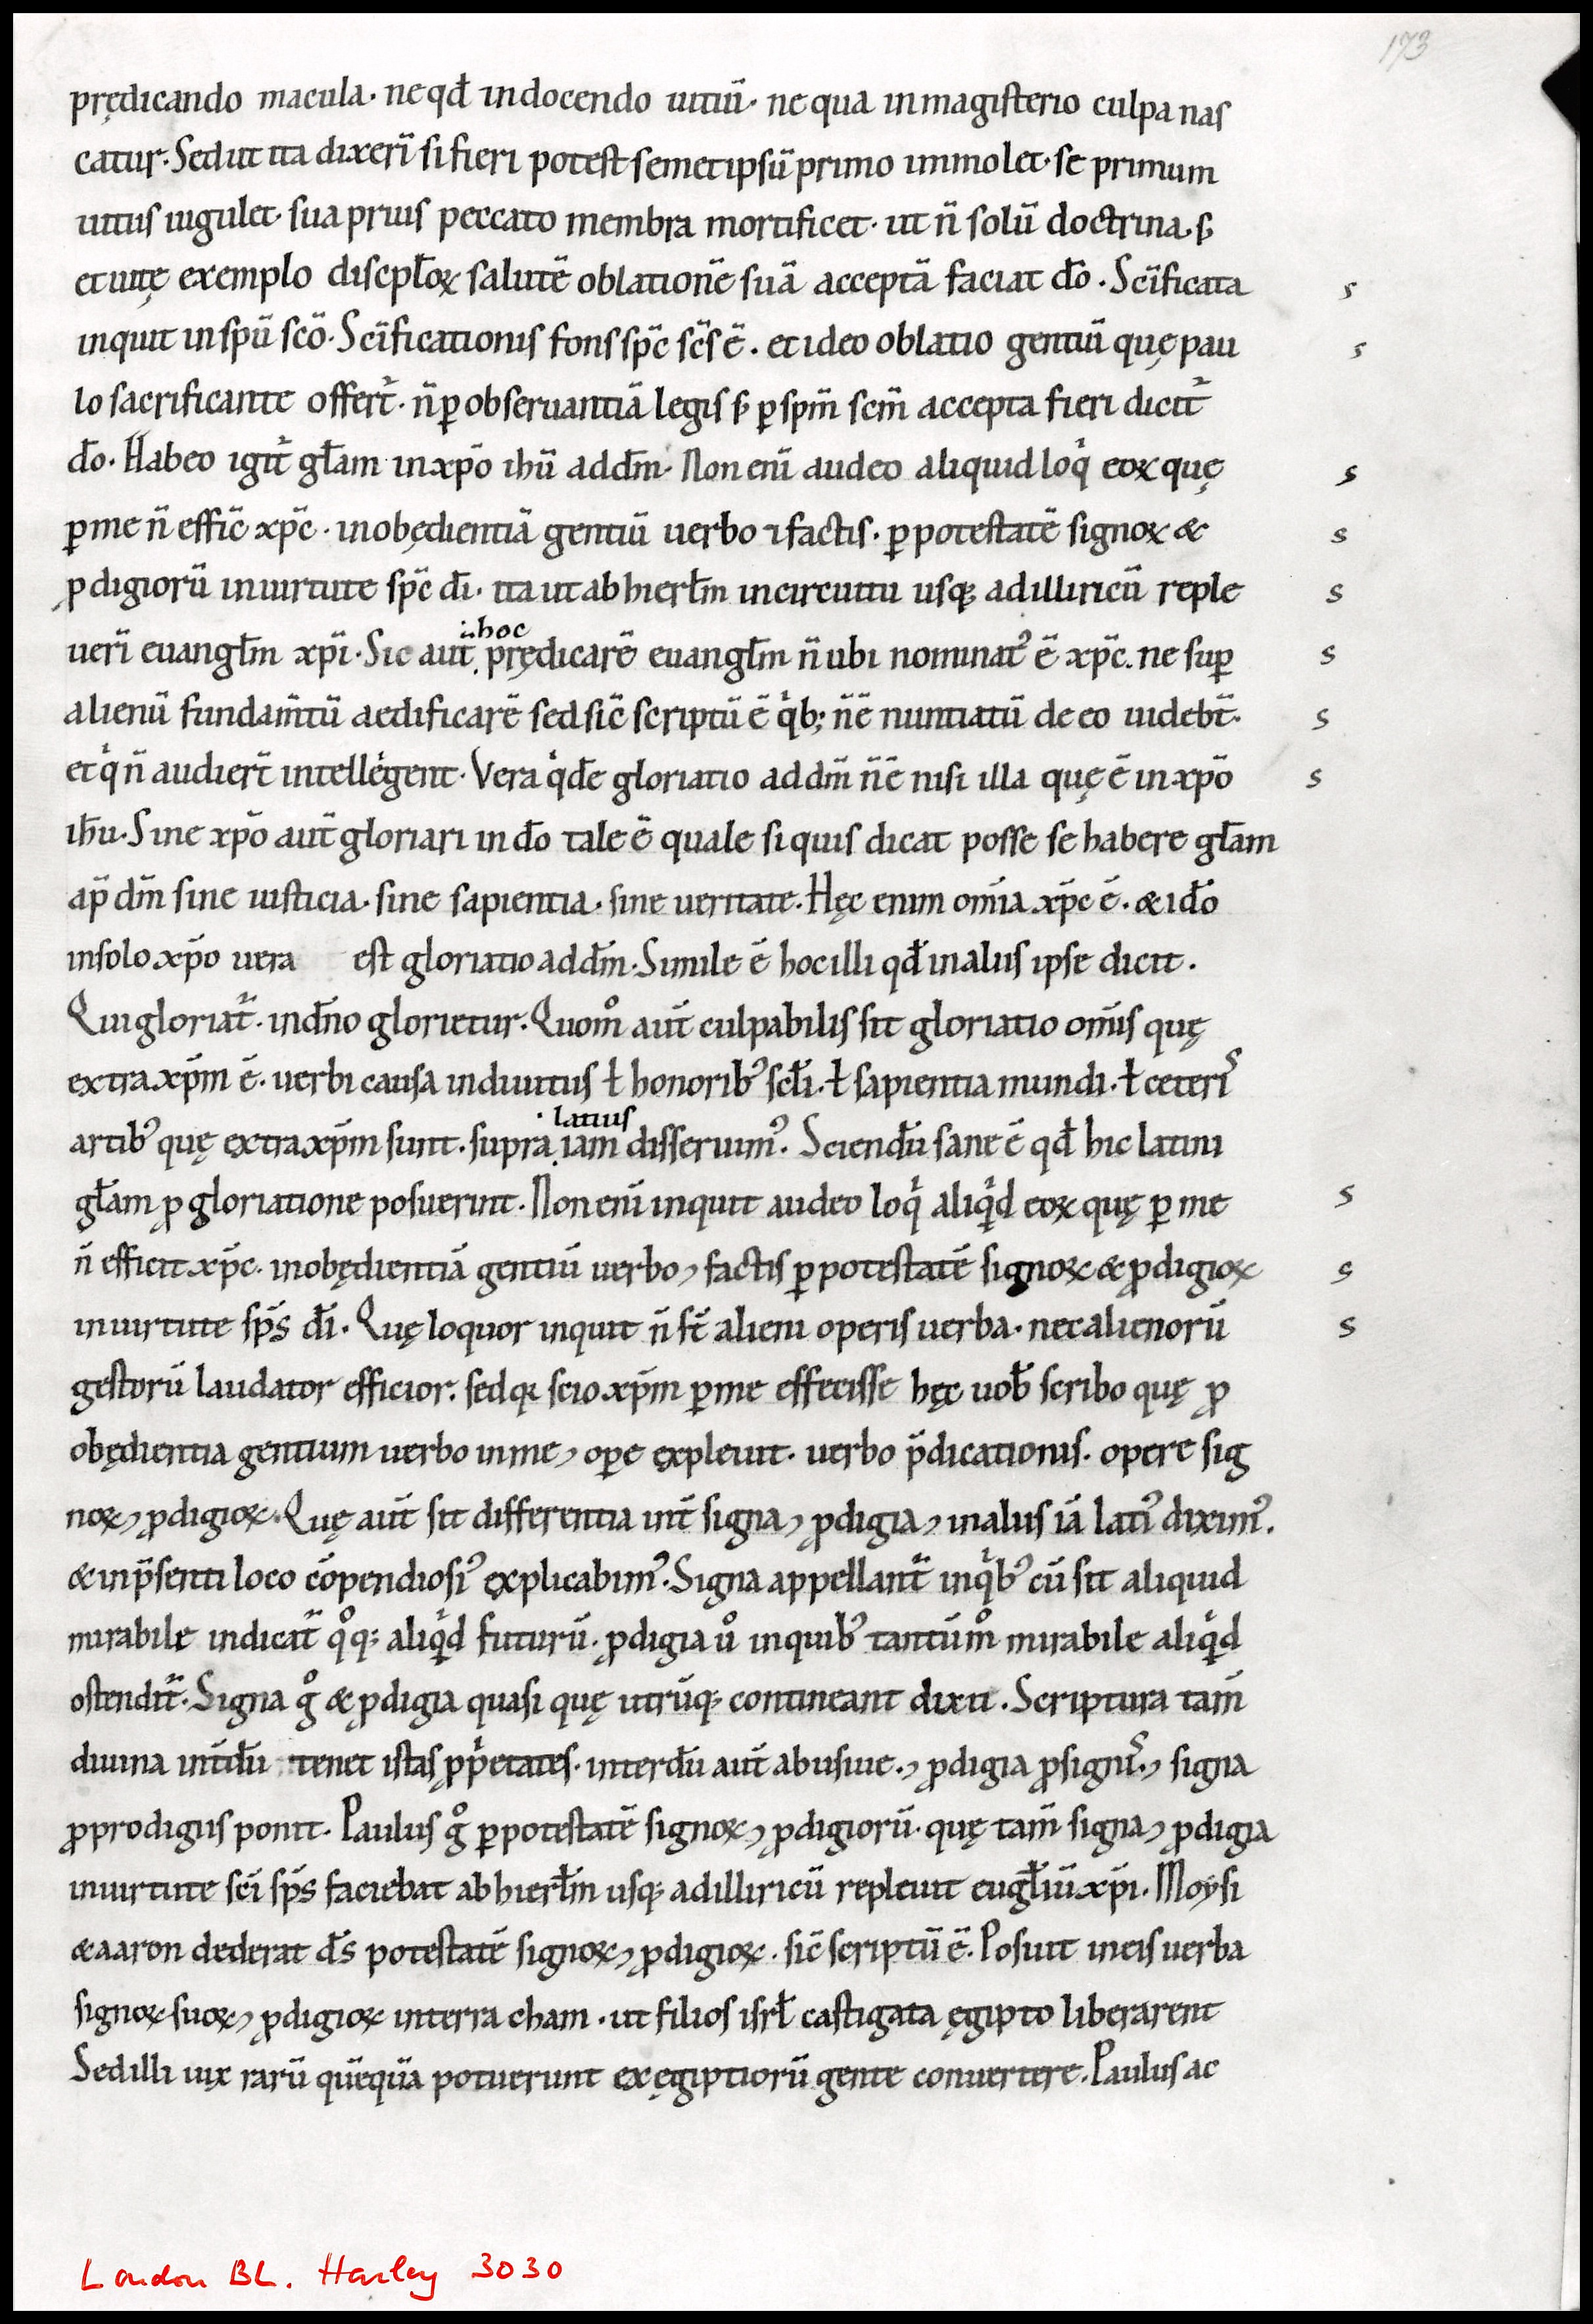 173
prędicando macula· ne qđ in docendo uitiū· ne qua in magisterio culpa nas
catur· Sed ut ita dixerī si fieri potest semetipsū primo immolet· se primum
uitus iugulet· sua prius peccato membra mortificet· ut n̄ solū doctrina· ꝭ
et uitę exemplo discipłoꝝ salutē oblationē suā acceptā faciat do̅· Sc̄ificata
inquit in spū sc̄o· Sc̄ificationis fons sp̄c sc̄s ē· et ideo oblatio gentiū quę pau
lo sacrificante offert̄· n̄ ꝑ obseruantiā legis ꝭ ꝑ spm̄ scm̄ accepta fieri dicit̄
do̅· Habeo igit̄ gł̄am in xp̄o ihū ad dm̄· Non enī audeo aliquid loqͥ eoꝝ quę
ꝑ me n̄ efficͭ xp̄c· in obędientiā gentiū uerbo ⁊ factis· ꝑ potestatē signoꝝ &
ꝓdigiorū in uirtute sp̄c dī· ita ut ab hierł̄m in circuitu usqꝫ ad illiricū reple
uerī euangł̄m xp̄i· Sic aut̄ prędicarē euangł̄m n̄ ubi nominatꝰ ē xp̄c· ne suꝑ
·hoc
alienū fundam̄tū aedificarē sed sic̄ scriptū ē qͥb; n̄ ē nuntiatū de eo uidebt̄·
et qͥ n̄ audiert̄ intellegent· Vera qͥdē gloriatio ad dm̄ n̄ ē nisi illa quę ē in xp̄o
ihū· Sine xp̄o aut̄ gloriari in do̅ tale ē quale si quis dicat posse se habere gł̄am
ap̄ dm̄ sine iusticia· sine sapientia· sine ueritate· Hęc enim om̄ia xp̄c ē· & id̄o
in solo xp̄o uera est gloriatio ad dm̄· Simile ē hoc illi qđ in alus ipse dicit·
Qui gloriat̄· in dn̄o glorietur· Quom̊ aut̄ culpabilis sit gloriatio om̄is quę
extra xp̄m ē· uerbi causa in diuitus ł honoribꝰ scł̄i· ł sapientia mundi· ł ceteriˢ
artibꝰ quę extra xp̄m sunt· supra iam disseruimꝰ· Sciendū sane ē qđ hic latini
·latius
gł̄am ꝓ gloriatione posuerint· Non enī inquit audeo loqͥ aliqͥd eoꝝ quę ꝑ me
n̄ efficit xp̄c· in obędientiā gentiū uerbo ⁊ factis ꝑ potestatē signoꝝ & ꝓdigioꝝ
in uirtute sp̄s dī· Quę loquor inquit n̄ st̄ alieni operis uerba· nec alienorū
gestorū laudator efficior· sed qꝛ scio xp̄m ꝑ me effecisse hęc uob̄ scribo quę ꝓ
obędientia gentium uerbo in me ⁊ oꝑe expleuit· uerbo p̄dicationis· opere sig
noꝝ ⁊ ꝓdigioꝝ· Quę aut̄ sit differentia int̄ signa ⁊ ꝓdigia ⁊ in alus iā latiꝰ diximꝰ·
& in p̄senti loco cōpendiosiꝰ explicabimꝰ· Signa appellant̄ in qͥbꝰ cū sit aliquid
mirabile indicat̄ q̊qꝫ aliqͥd futurū· ꝓdigia ů in quibꝰ tantūm̊ mirabile aliqͥd
ostendit̄· Signa g̊ & ꝓdigia quasi quę utrūqꝫ contineant dixit· Scriptura tam̄
diuina int̄dū tenet istas ꝓpͥetates· interdū aut̄ abusiue· ⁊ ꝓdigia ꝓ signiˢ· ⁊ signa
ꝓ prodigus ponit· Paulus g̊ ꝑ potestatē signoꝝ ⁊ ꝓdigiorū· quę tam̄ signa ⁊ ꝓdigia
in uirtute sc̄i sp̄s faciebat ab hierł̄m usqꝫ ad illiricū repleuit eugł̄iū xp̄i· Moysi
& aaron dederat d̄s potestatē signoꝝ ⁊ ꝓdigioꝝ· sic̄ scriptū ē· Posuit in eis uerba
signoꝝ suoꝝ ⁊ ꝓdigioꝝ in terra cham· ut filios isrł castigata ęgipto liberarent
Sed illi uix rarū quēquā potuerunt ex ęgiptiorū gente conuertere· Paulus ac
s
s
s
s
s
s
s
s
s
s
s
London BL. Harley 3030